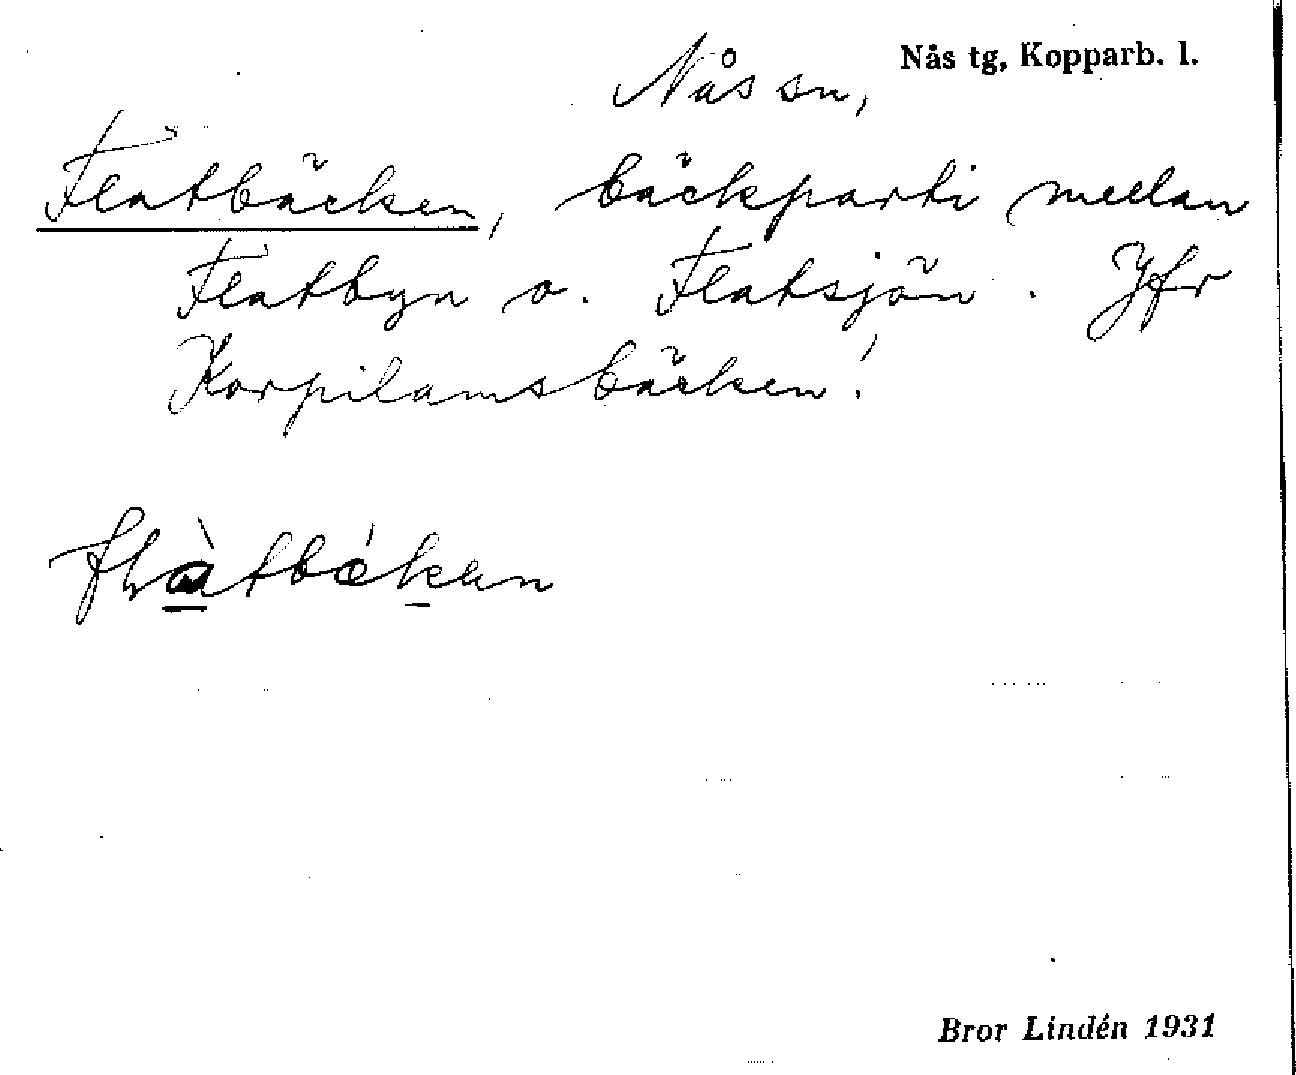 Nås tg, Kopparb. l.
Nås sn,
Flatbäcken, bäckparti mellan
Flatbyn o. Flatsjön. Jfr
Korpilamsbäcken!
Bror Lindén 1931